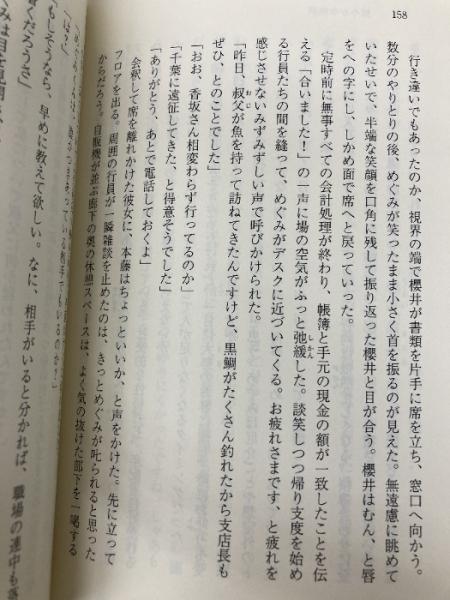 158
行き違いでもあったのか、視界の端で櫻井が書類を片手に席を立ち、窓口へ向かう。
数分のやりとりの後、めぐみが笑ったまま小さく首を振るのが見えた。無遠慮に眺めて
いたせいで、半端な笑顔を口角に残して振り返った櫻井と目が合う。櫻井はむん、と唇
をへの字にし、しかめ面で席へと戻っていった。
定時前に無事すべての会計処理が終わり、帳簿と手元の現金の額が一致したことを伝
える「合いました！」の一声に場の空気がふっと弛緩した。談笑しつつ帰り支度を始め
しかん
る行員たちの間を縫って、めぐみがデスクに近づいてくる。お疲れさまです、と疲れを
感じさせないみずみずしい声で呼びかけられた。
「昨日、叔父が魚を持って訪ねてきたんですけど、黒鯛がたくさん釣れたから支店長も
おじ
ぜひ、とのことでした」
「おお、香坂さん相変わらず行ってるのか」
「千葉に遠征してきた、と得意そうでした」
「ありがとう、あとで電話しておくよ」
会釈して席を離れかけた彼女に、本藤はちょっといいか、と声をかけた。先に立って
フロアを出る。周囲の行員が一瞬雑談を止めたのは、きっとめぐみが叱られると思った
からだろう。自販機が並ぶ廊下の奥の休憩スペースは、よく気の抜けた部下を一喝する
「もしそうなら、早めに教えて欲しい。なに、相手がいると分かれば、職場の連中も